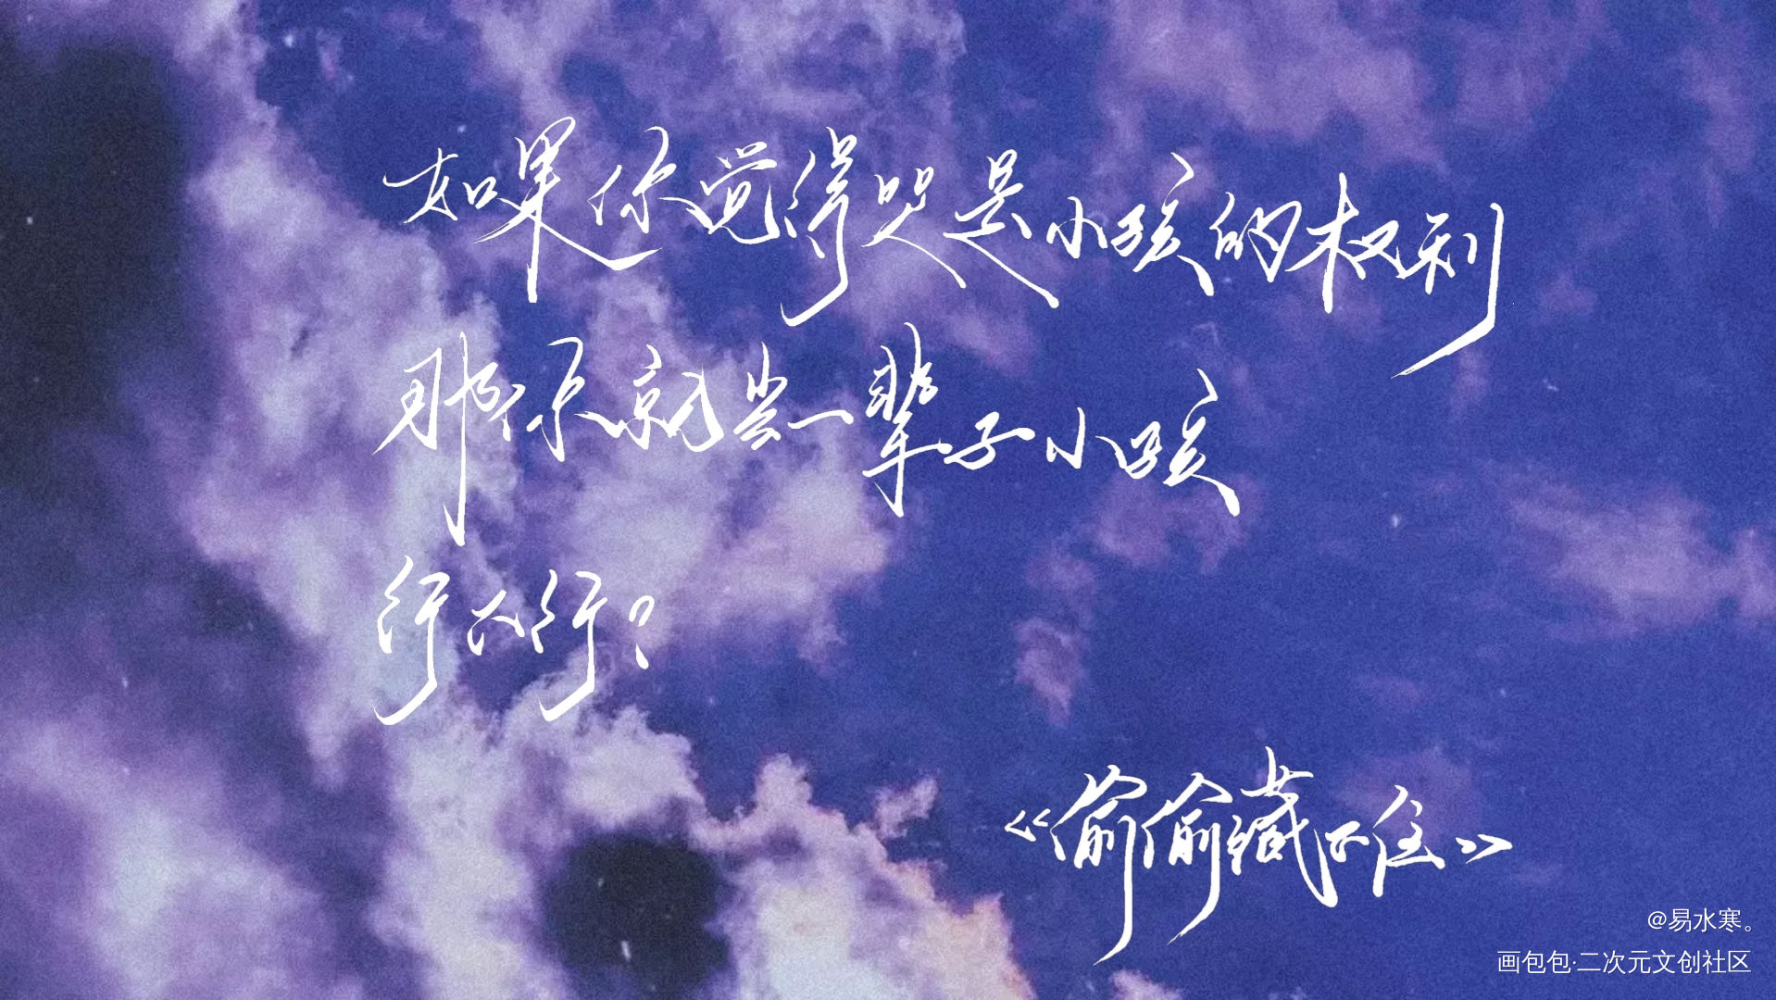 如果你觉得哭是小孩的权利
那你就当一辈子小孩
行不行?
《偷偷藏不住》
@易水寒。
画包包·二次元文创社区